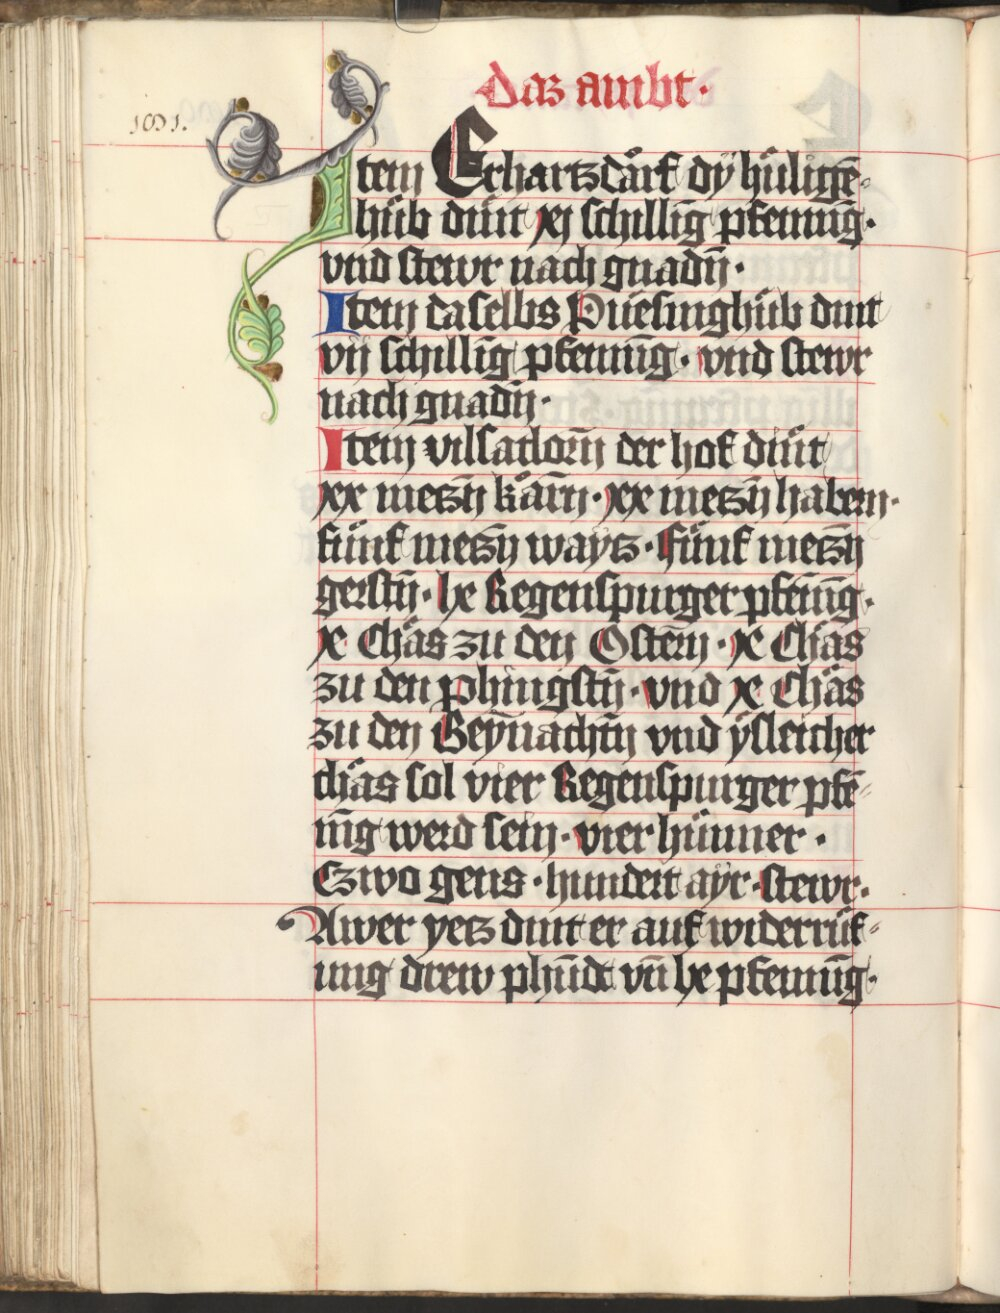 Daz ambt·
1091.
Item Erhartzdarf dÿ hüligē-
hůb dint xj schilling pfenning·
vnd stewr nach gnadn̄·
Item daselbs Puesinghůb dint
vij schillīg pfennīg· vnd stewr
nach gnadn̄·
Item vilsatlorn̄ der hof dint
xx metzn̄ kärn· xx metzn̄ habern·
fünf metzn̄ waytz· fünf metzn̄
gerstn̄· lx Regenspurger pfening·
x Chäs zu den Ostern· x Chäs
zu den phingstn̄· vnd x Chäs
zu den Weynachtn̄ vnd ÿsleicher
chäs sol vier Regenspurger pfē-
nīg werd sein· vier hünner ·
Czwo gens · hundert aÿr· stewr·
Awer yetz dint er auf widerrüf-
ung drew phūdt vn̄ lx pfennīg·